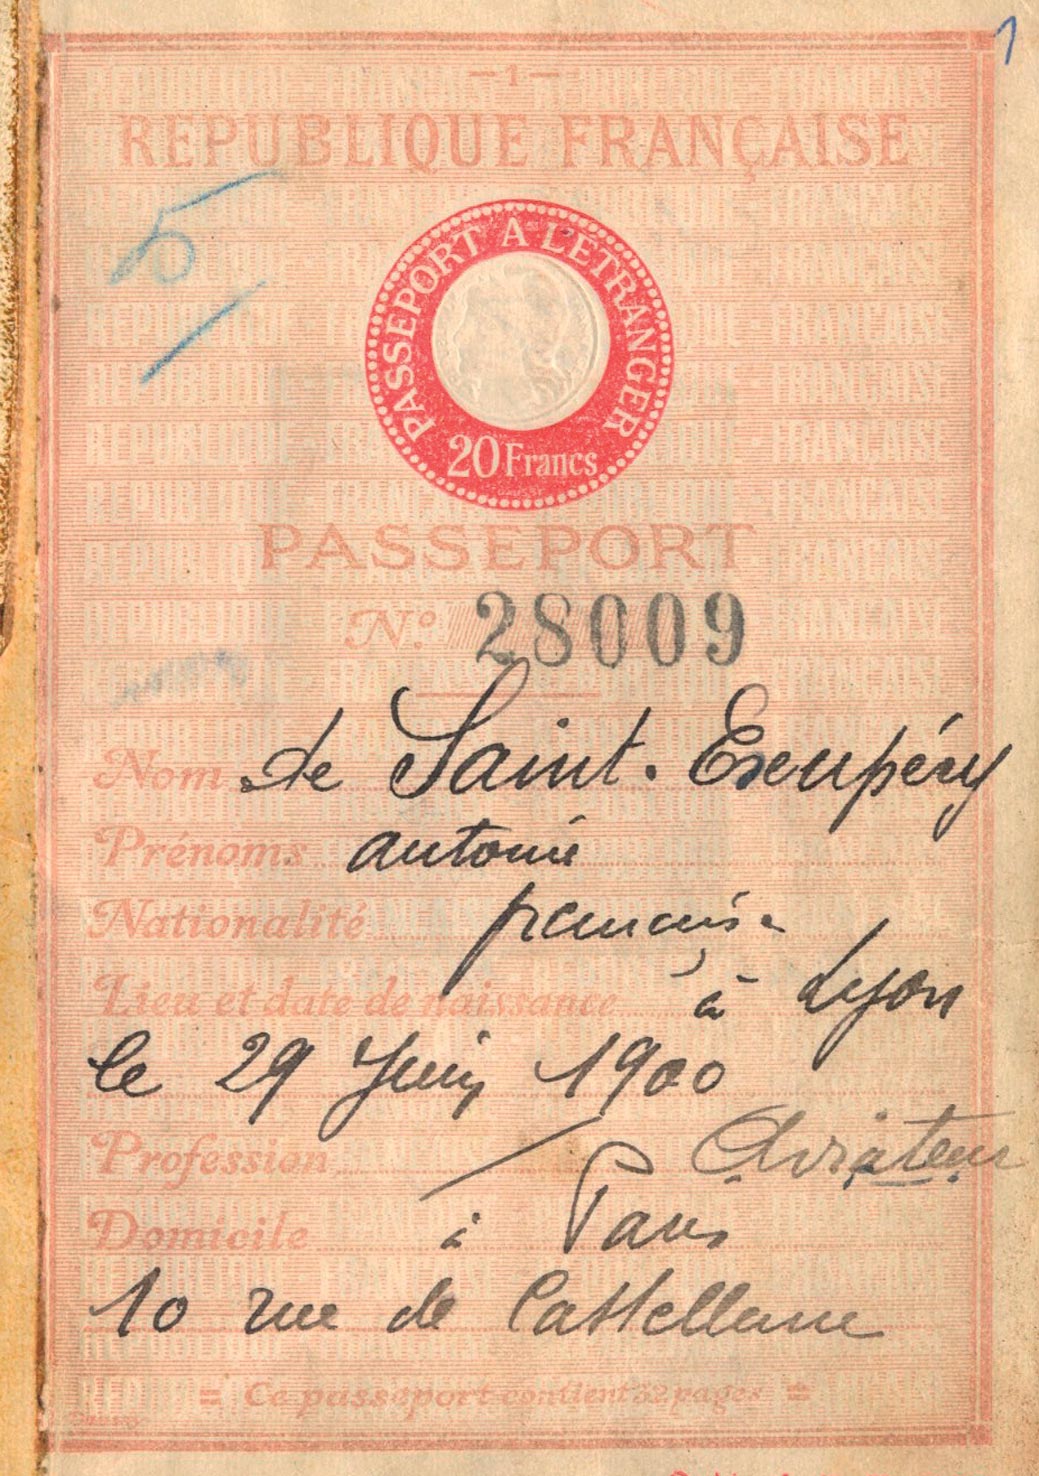 1
— 1 —
RÉPUBLIQUE FRANÇAISE
5
PASSEPORT À L'ÉTRANGER
20 Francs
PASSEPORT
N° 28009
Nom de Saint-Exupéry
Prénoms antoine
Nationalité française
Lieu et date de naissance à Lyon
le 29 Juin 1900
Profession Aviateur
Domicile à Paris
10 rue de Castellane
= Ce passeport contient 32 pages =